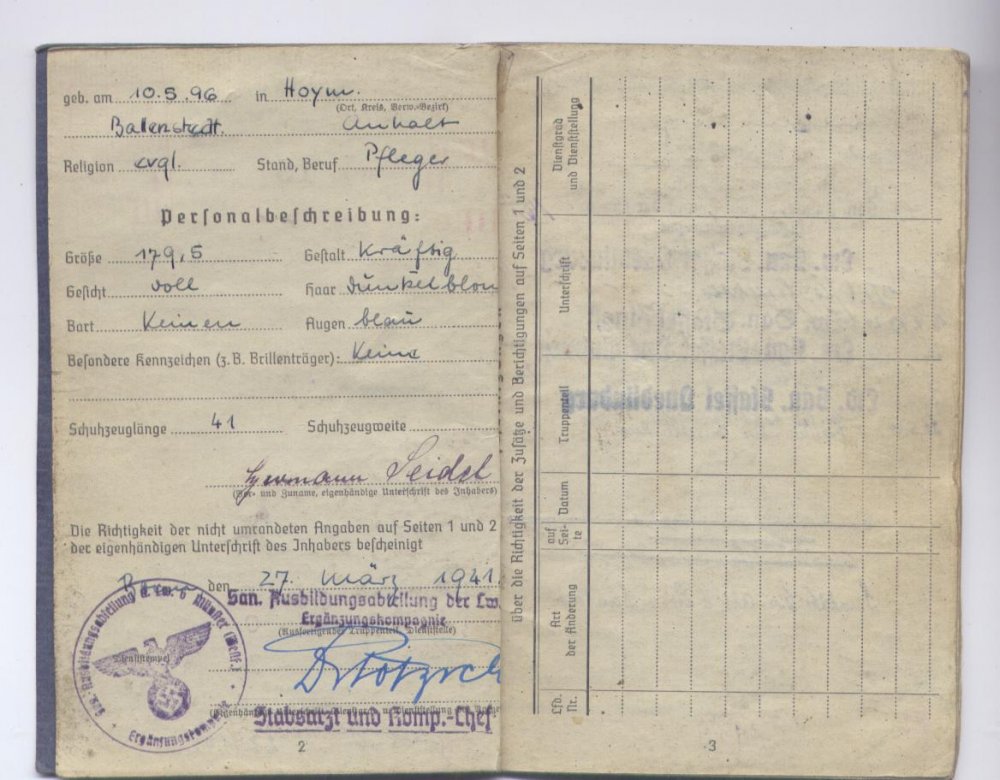 geb. am 10.5.96 in Hoym.
(Ort, Kreis, Verw.-Bezirk)
Ballenstedt. Anhalt
Religion evgl. Stand, Beruf Pfleger
Personalbeschreibung:
Größe 179,5 Gestalt kräftig
Gesicht voll Haar dunkelblon
Bart keinen Augen blau
Besondere Kennzeichen (z. B. Brillenträger): keine
Schuhzeuglänge 41 Schuhzeugweite
Hermann Seidel
(Vor- und Zuname, eigenhändige Unterschrift des Inhabers)
Die Richtigkeit der nicht umrandeten Angaben auf Seiten 1 und 2
der eigenhändigen Unterschrift des Inhabers bescheinigt
den 27. März 1941.
San. Ausbildungsabteilung der Lw.
Ergänzungskompagnie
(Ausfertigender Truppenteil, Dienststelle)
Dienststempel
San. Ausbildungsabteilung d. Lw. 6 Münster (Westf.)
Ergänzungskomp.
Stabsarzt und Komp.-Chef
2
über die Richtigkeit der Zusätze und Berichtigungen auf Seiten 1 und 2
Dienstgrad
und Dienststellung
Unterschrift
Truppenteil
Datum
auf
Sei-
te
Art
der Änderung
Lfd.
Nr.
3